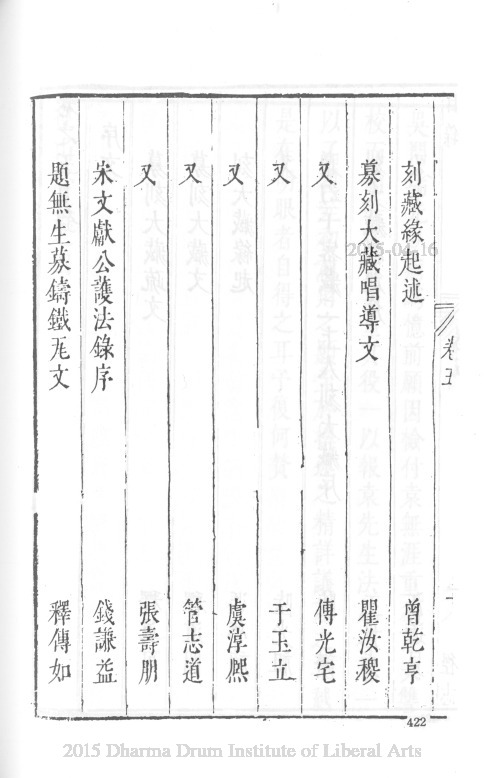 卷五
刻藏緣起述 曾乾亨
募刻大藏唱導文 瞿汝稷
又 傅光宅
又 于玉立
又 虞淳熈
又 管志道
又 張壽朋
宋文獻公護法錄序 錢謙益
題無生募鑄鐵瓦文 釋傳如
422
2015-04-16
2015 Dharma Drum Institute of Liberal Arts